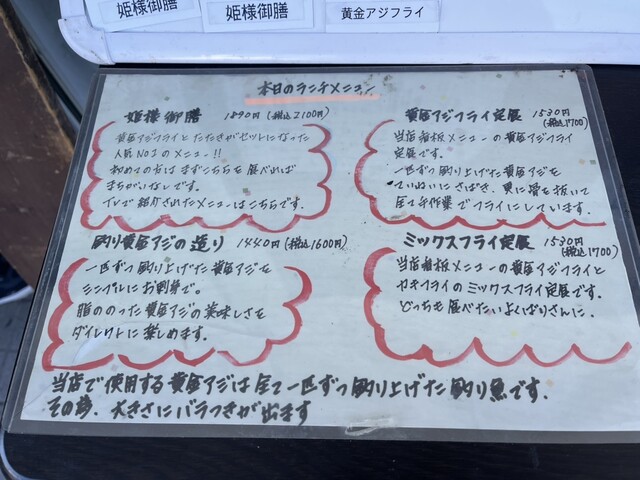 姫様御膳
姫様御膳
黄金アジフライ
本日のランチメニュー
姫様御膳 1890円(税込2100円)
黄金アジフライとたたきがセットになった
人気NO1のメニュー!!
初めての方はまずこちらを食べれば
まちがいなしです。
TVで紹介されたメニューはこちらです。
黄金アジフライ定食 1530円
(税込1700)
当店看板メニューの黄金アジフライ
定食です。
一匹ずつ釣り上げた黄金アジを
ていねいにさばき、更に骨を抜いて
全て手作業でフライにしています。
釣り黄金アジの造り 1440円(税込1600円)
一匹ずつ釣り上げた黄金アジを
シンプルにお刺身で。
脂ののった黄金アジの美味しさを
ダイレクトに楽しめます。
ミックスフライ定食 1530円
(税込1700)
当店看板メニューの黄金アジフライと
カキフライのミックスフライ定食です。
どっちも食べたいよくばりさんに。
当店で使用する黄金アジは全て一匹ずつ釣り上げた釣り魚です.
その為、大きさにバラつきが出ます